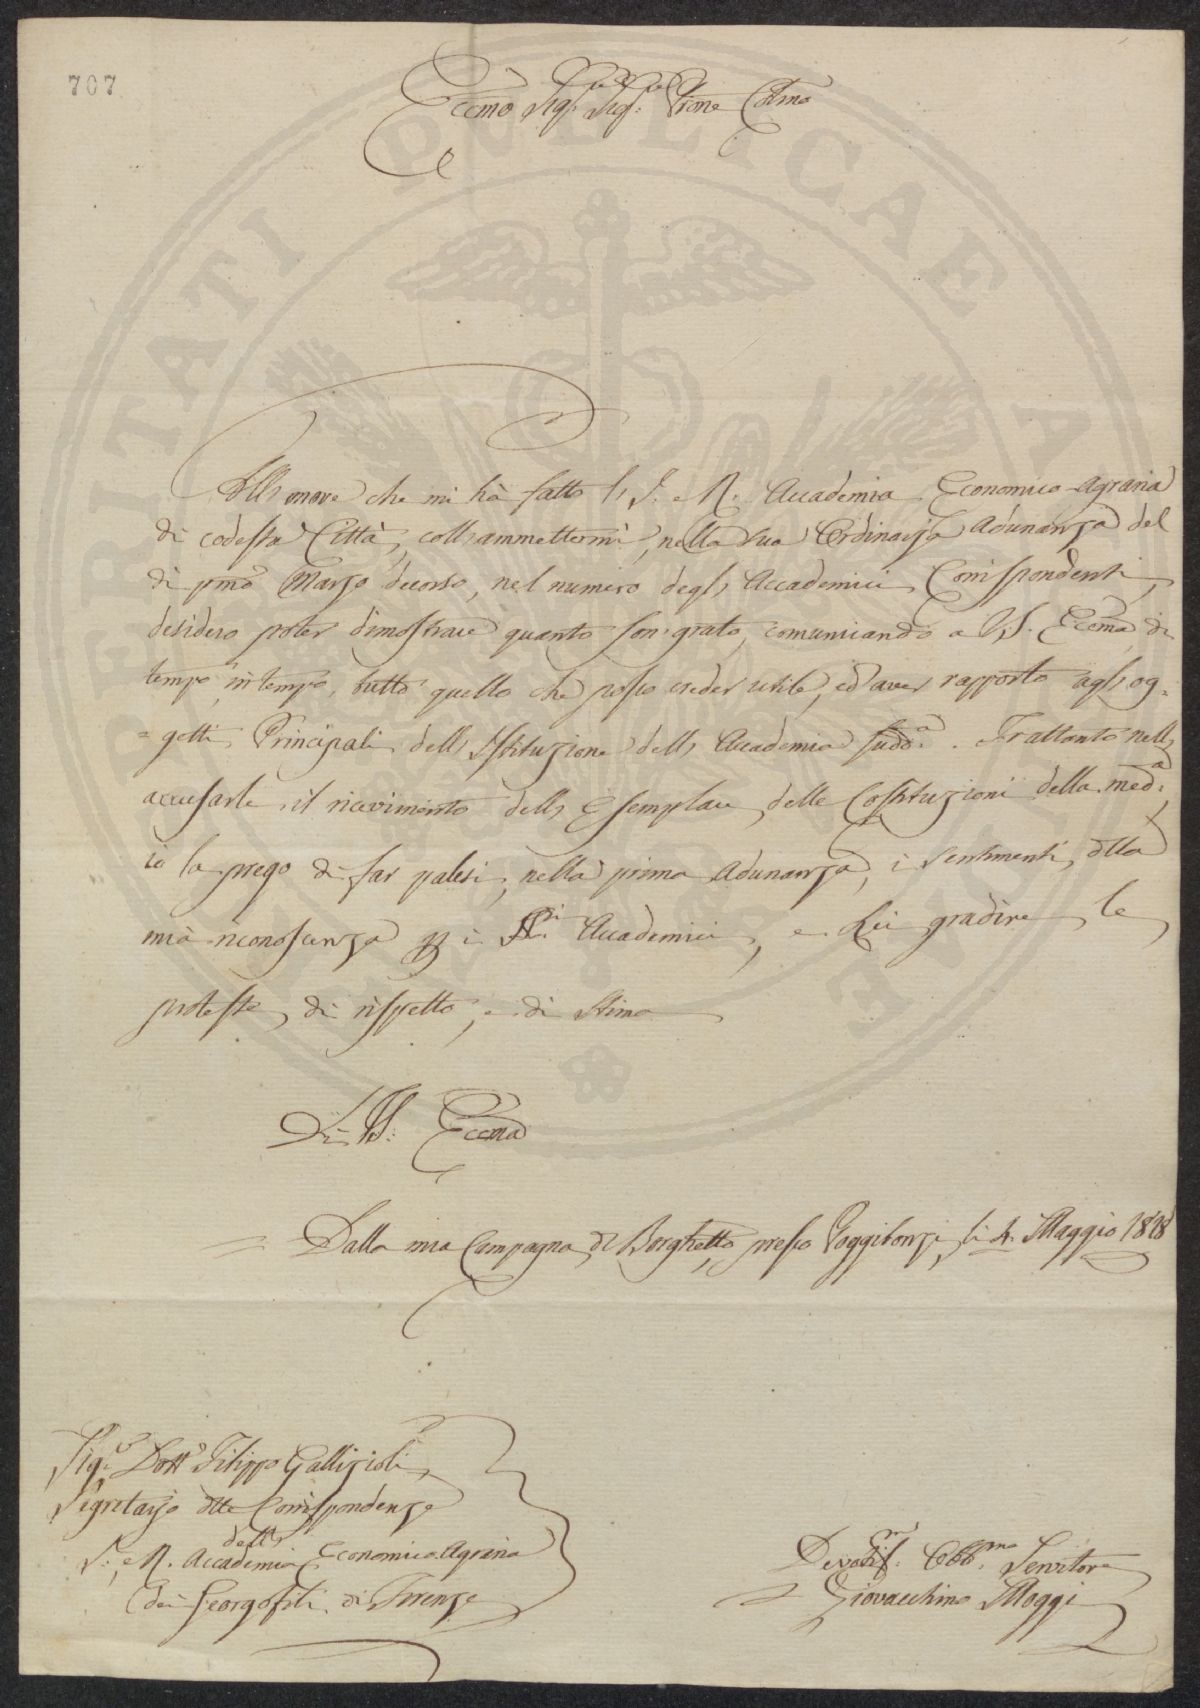 707
Eccmo Sig.re Sig.re Prone Colmo
All'onore che mi hà fatto l'I. e R. Accademia Economico-Agraria
di codesta Città, coll'ammettermi, nella sua Ordinaria Adunanza del
dì pmo Marzo decorso, nel numero degl'Accademici Corrispondenti,
desidero poter dimostrare quanto son grato, comunicando a VS. Eccma, di
tempo in tempo, tutto quello che posso creder utile, ed aver rapporto agl'og=
=getti Principali dell'Istituzione dell'Accademia sudd.a. Frattanto nell'
accusarle il ricevimento dell'Esemplare delle Costituzioni della med.a,
io la prego di far palesi, nella prima Adunanza, i sentimenti, della
mia riconoscenza p i SS.ri Accademici, e Lei gradire le
proteste, di rispetto, e di stima
Di VS. Eccma
Dalla mia Campagna di Borghetto presso Poggibonzi li 4. Maggio 1818
Sig.re Dott.e Filippo Gallizioli
Segretario delle Corrispondenze
dell'
I. e R. Accademia Economico-Agraria
dei Georgofili di Firenze
Devotis.mo Obb.mo Servitore
Giovacchino Moggi
PROSPERITATI PUBLICAE AUGENDAE